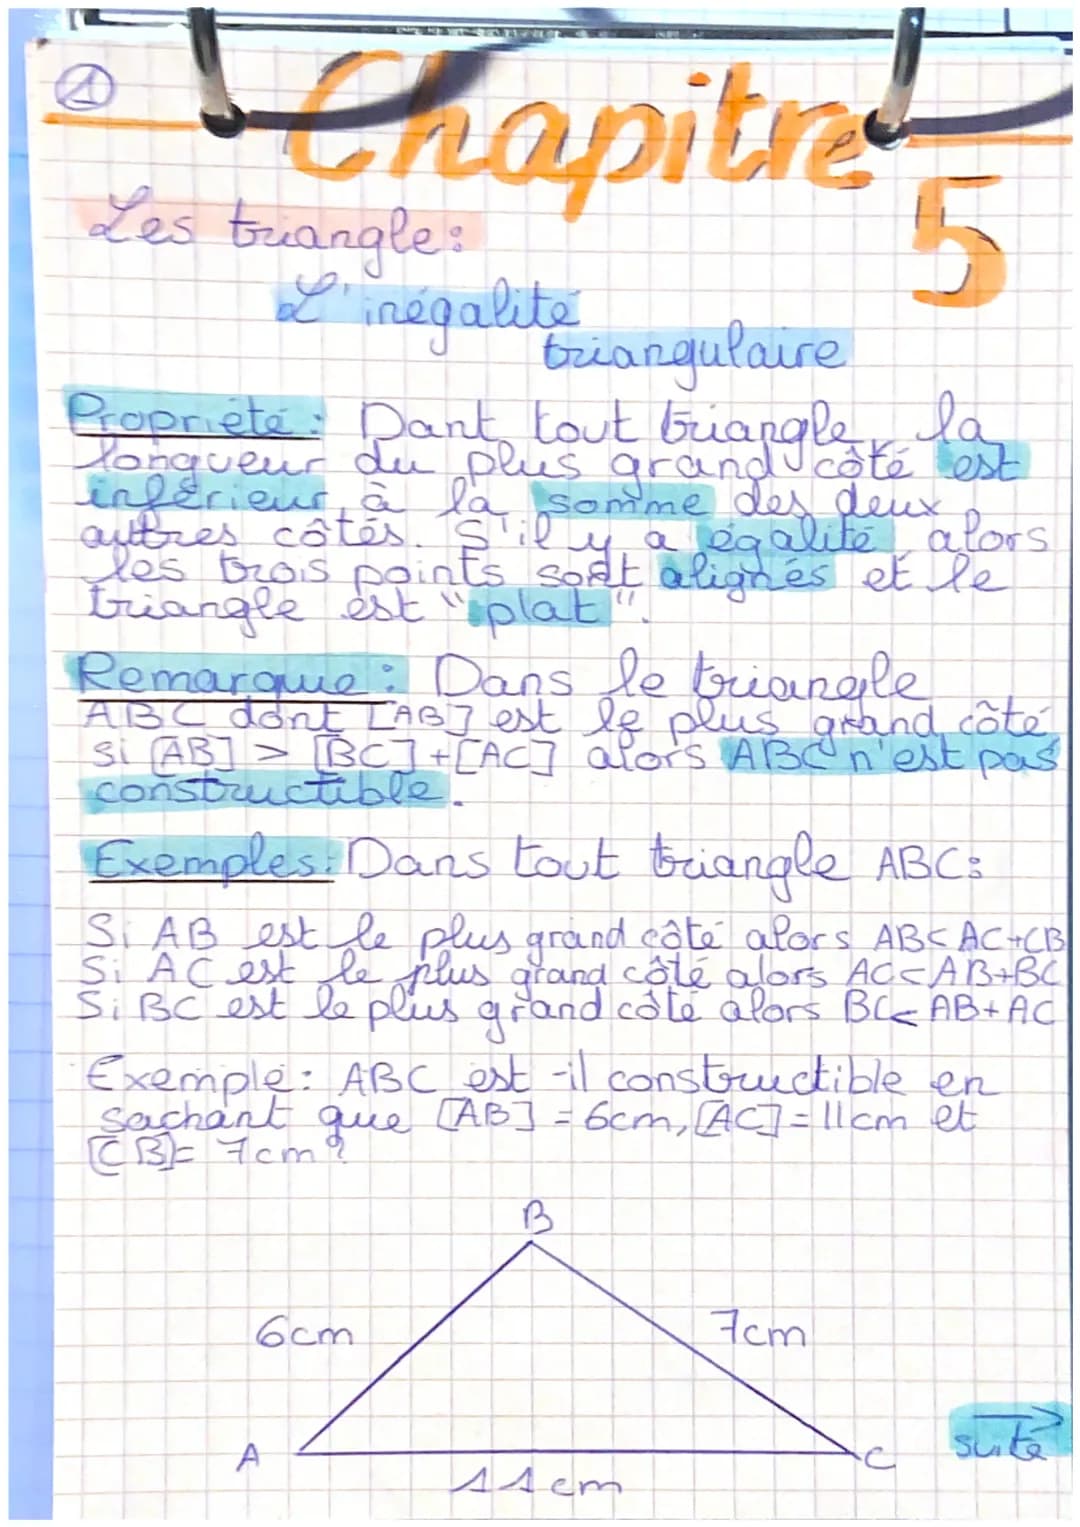 ①
Chapitre
5
Les triangle:
L'inégalité
triangulaire
Propriété: Dant tout triangle, la
longueur du plus grand côté est
inférieur à la somme des deux
autres côtés. S'il y a égalité alors
les trois points sont alignés et le
triangle est "plat".
Remarque: Dans le triangle
ABC dont [AB] est le plus grand côté
si [AB] > [BC]+[AC] alors ABC n'est pas
constructible.
Exemples: Dans tout triangle ABC:
Si AB est le plus grand côté alors AB<AC+CB
Si AC est le plus grand côté alors AC<AB+BC
Si BC est le plus grand côté alors BC<AB+AC
Exemple: ABC est-il constructible en
sachant que [AB]=6cm, [AC]=11cm et
[CB]=7cm?
B
6cm
7cm
A
C
11cm
suite